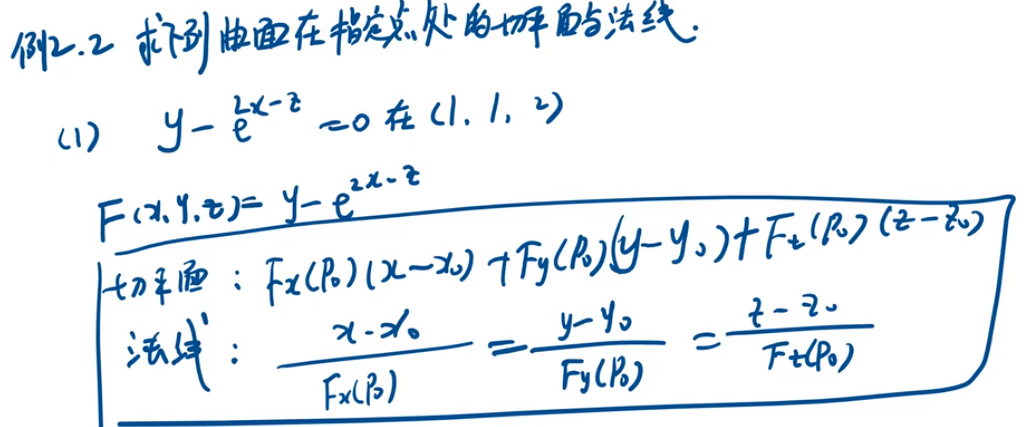 例2.2 求下列曲面在指定点处的切平面与法线.
(1) y - e^{2x-z} = 0 在 (1, 1, 2)
F(x, y, z) = y - e^{2x-z}
切平面 : Fx(P₀)(x-x₀) + Fy(P₀)(y-y₀) + Fz(P₀)(z-z₀)
法线 : \frac{x-x₀}{Fx(P₀)} = \frac{y-y₀}{Fy(P₀)} = \frac{z-z₀}{Fz(P₀)}